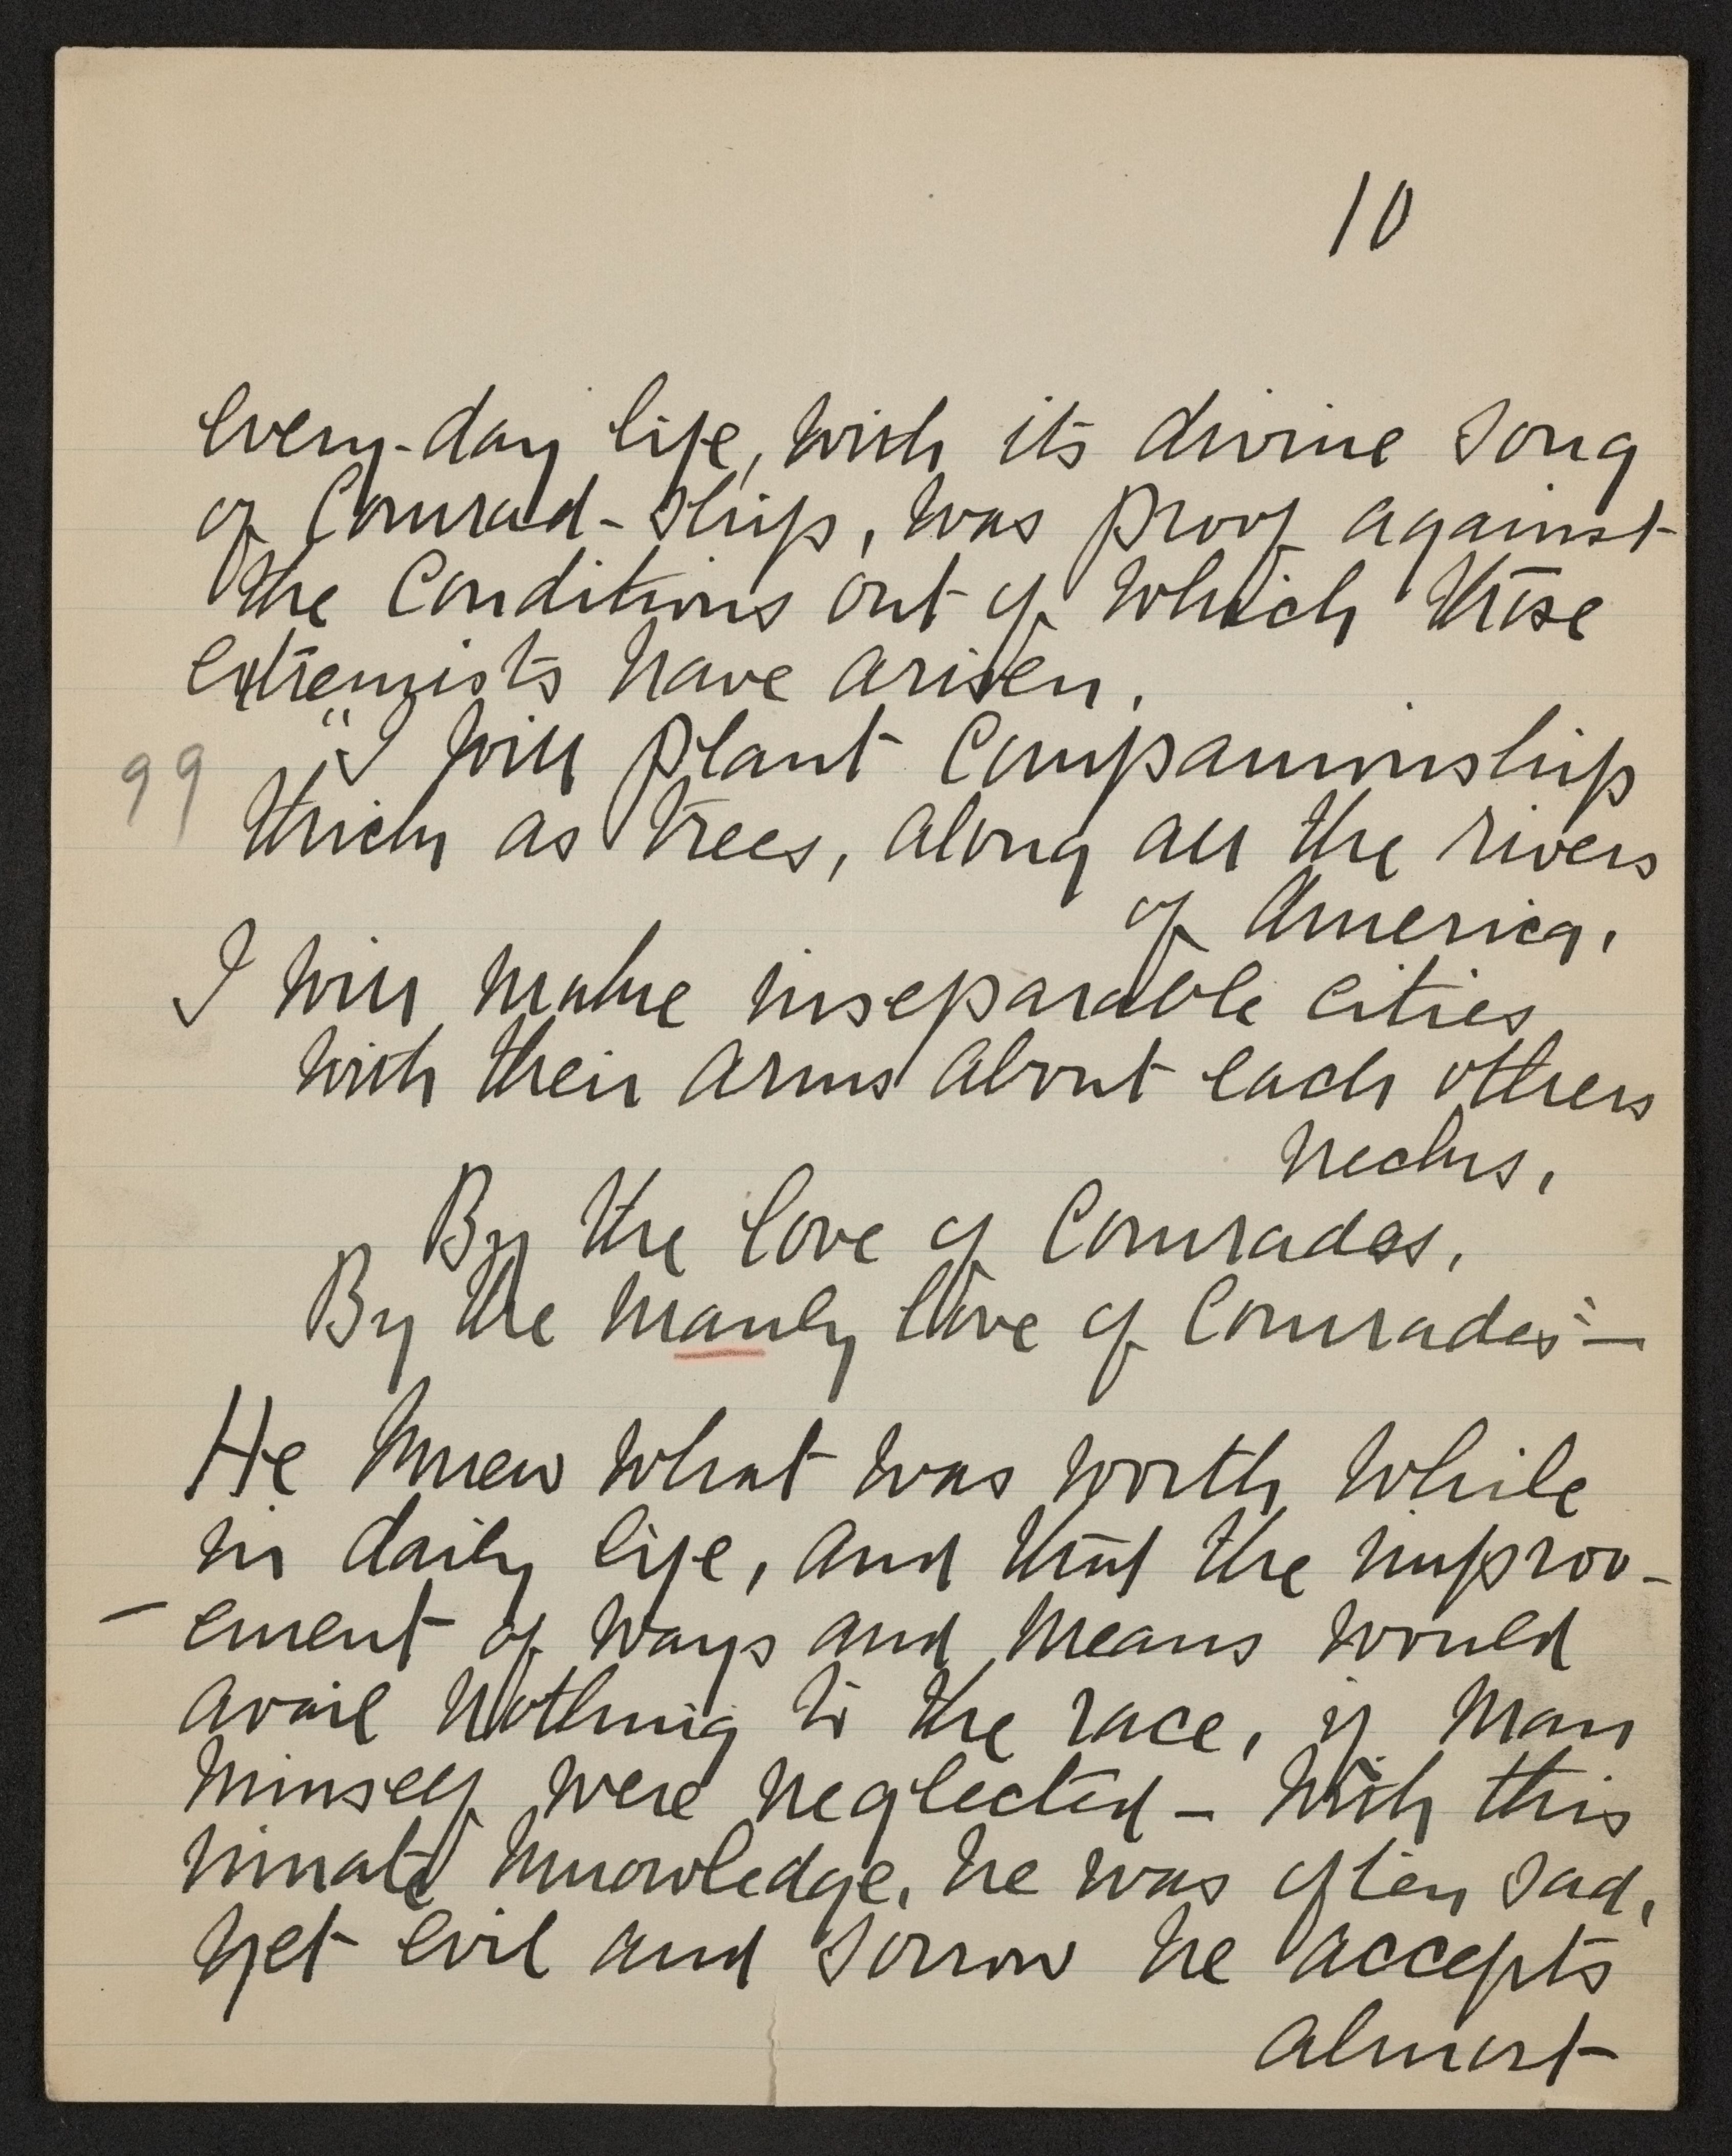 10
every-day life, with its divine song
of Comrad-ship, was proof against
the Conditions out of which these
extremists have arisen.
"I will plant Companionship
99
thick as trees, along all the rivers
of America,
I will make inseparable cities
with their arms about each others
necks,
By the love of Comrades,
By the manly love of Comrades" —
He knew what was worth while
in daily life, and that the improv-
- ement of ways and means would
avail nothing to the race, if Man
himself were neglected - With this
innate knowledge, he was often sad,
yet evil and sorrow he accepts
almost